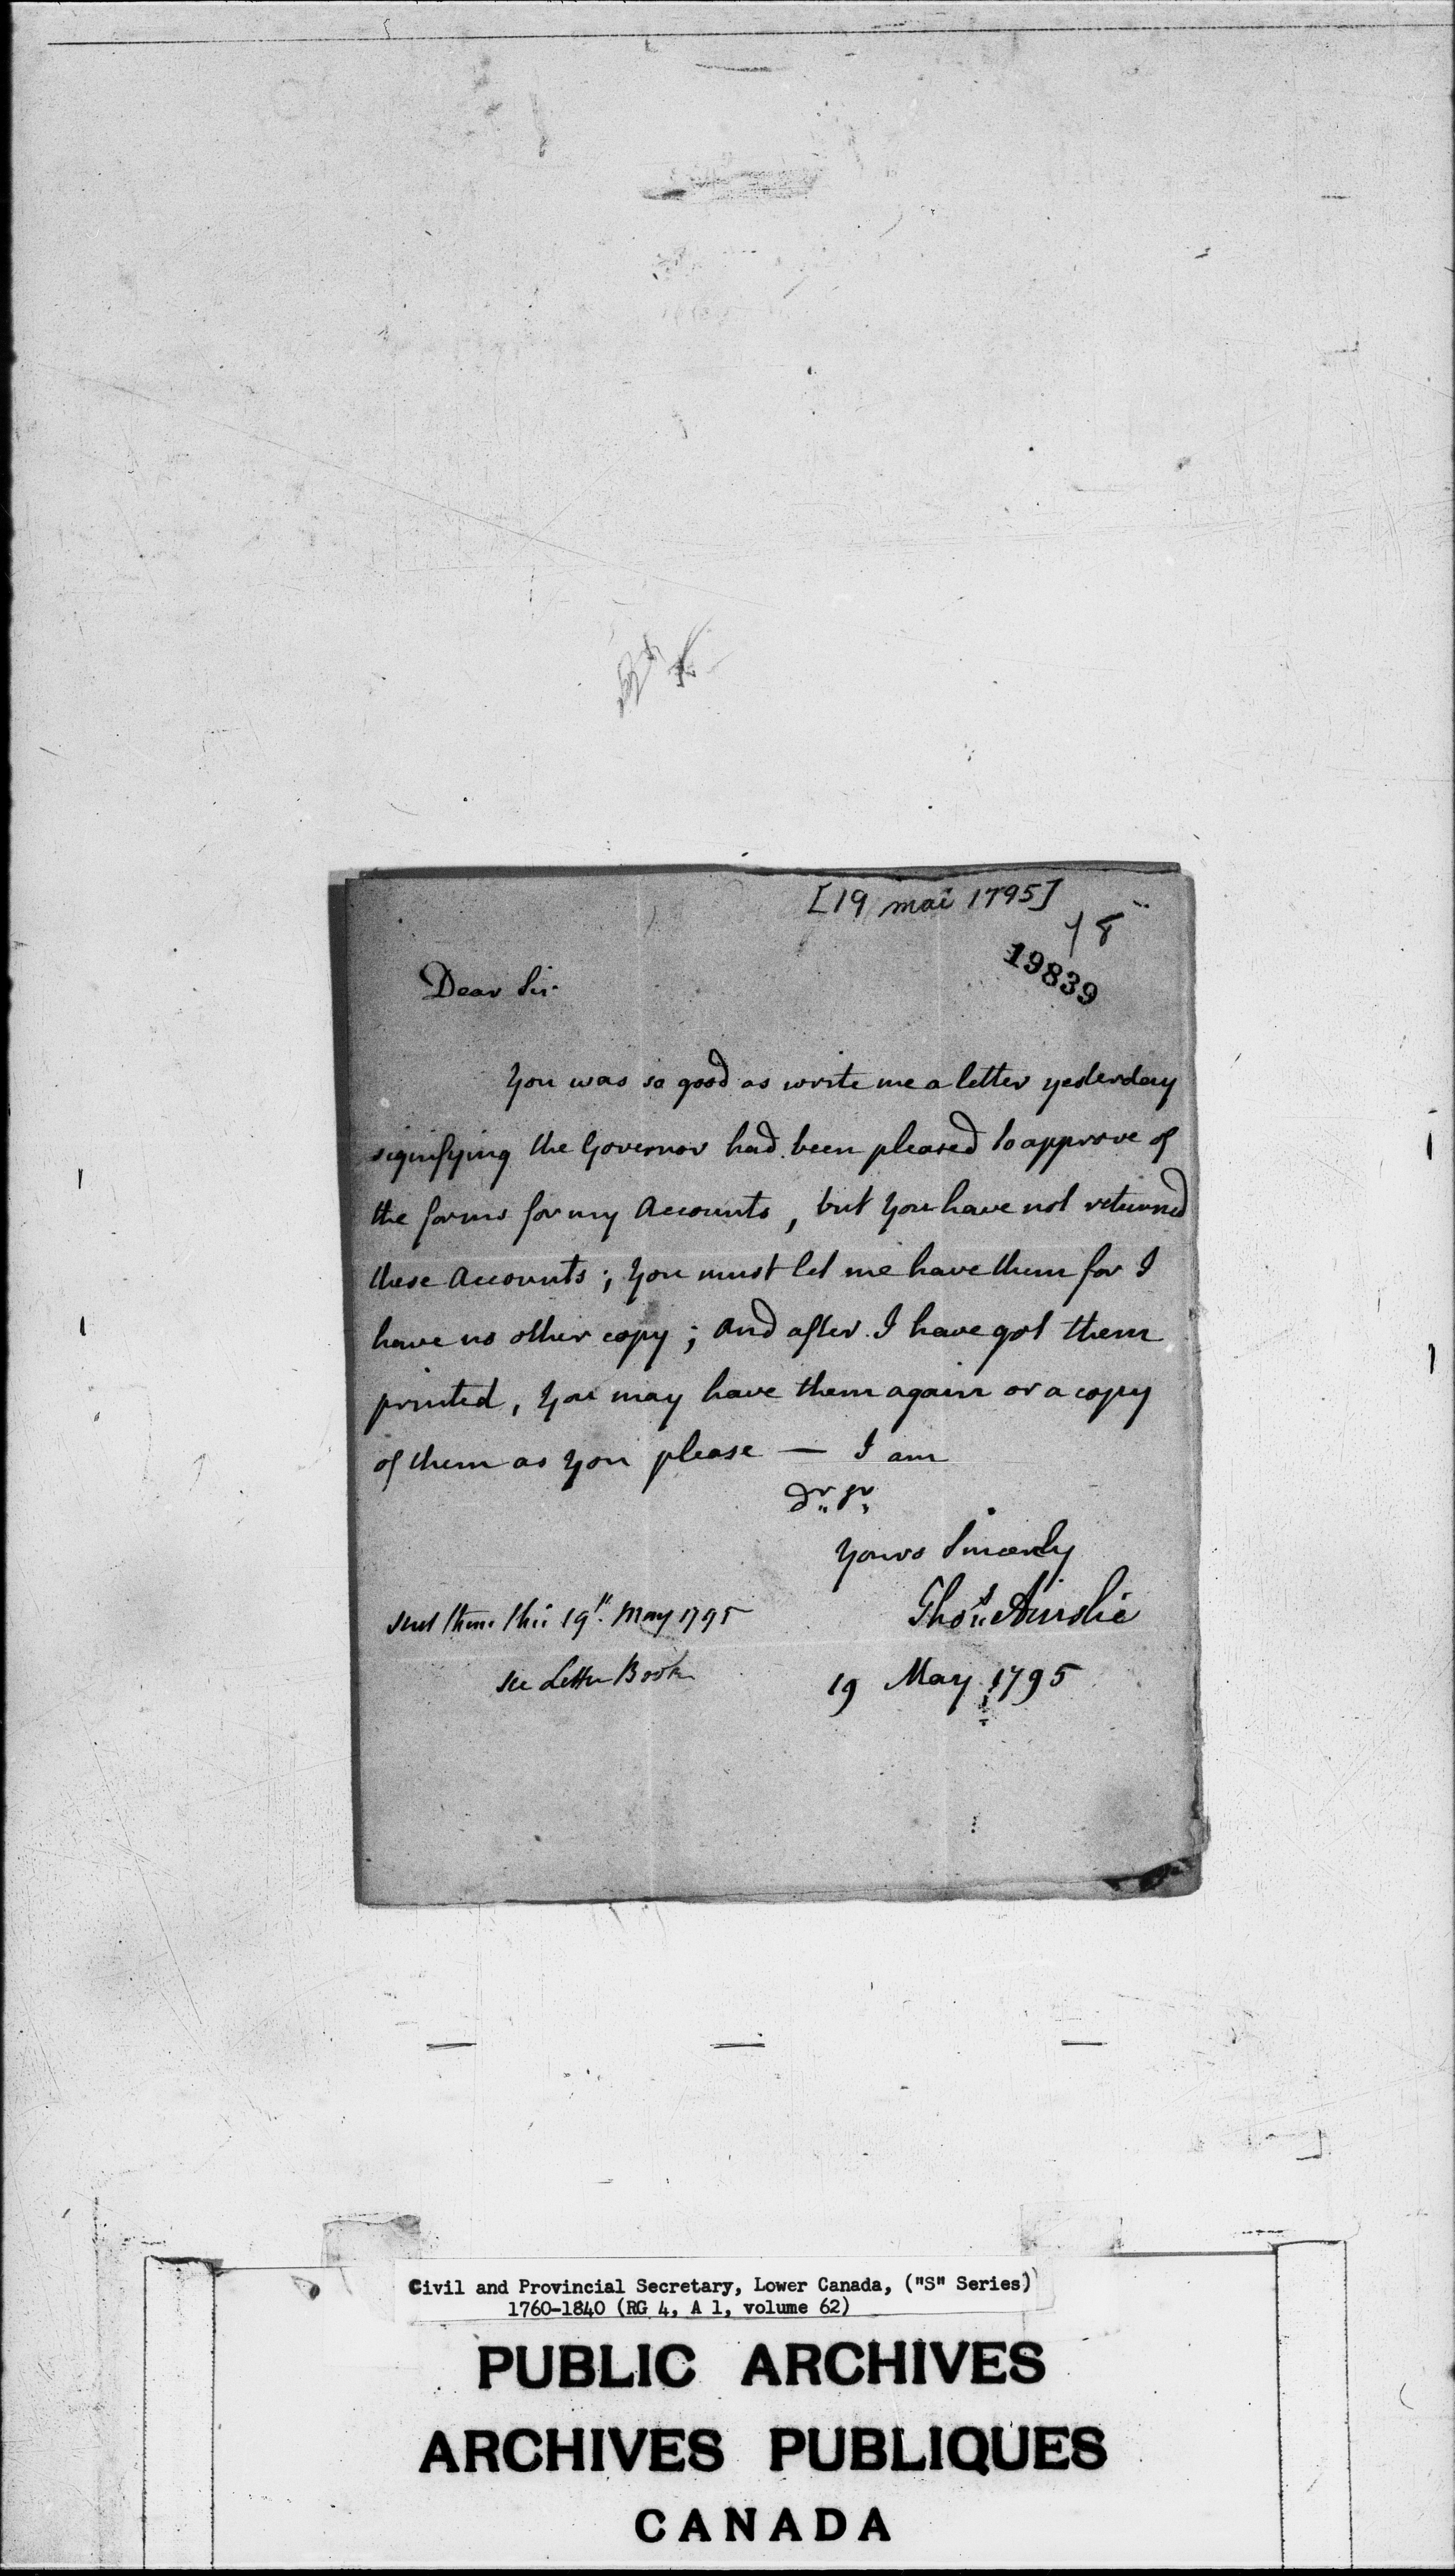 [19 mai 1795]
78
19839
Dear Sir
You was so good as write me a letter yesterday
signifying the Governor had been pleased to approve of
the forms for my Accounts, but You have not returned
these Accounts; You must let me have them for I
have no other copy; and after I have got them
printed, You may have them again or a copy
of them as You please — I am
Dr Sr
Yours Sincerely
Thos Ainslie
sent them this 19th May 1795
see Letter Book
19 May 1795
Civil and Provincial Secretary, Lower Canada, ("S" Series)
1760-1840 (RG 4, A 1, volume 62)
PUBLIC ARCHIVES
ARCHIVES PUBLIQUES
CANADA